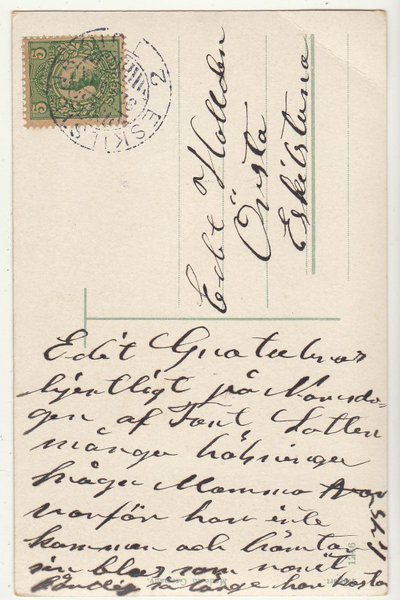 5 5
2 ESKILS
Edit Hollden
Örsta
Eskilstuna
Edit Gratuleras
hjertligt på Namnsda-
gen af Tant Lotten
många hälsningar
fråga Mamma
varför hon inte
kommer och hämtar
sin blus som varit
färdig så länge hon kosta